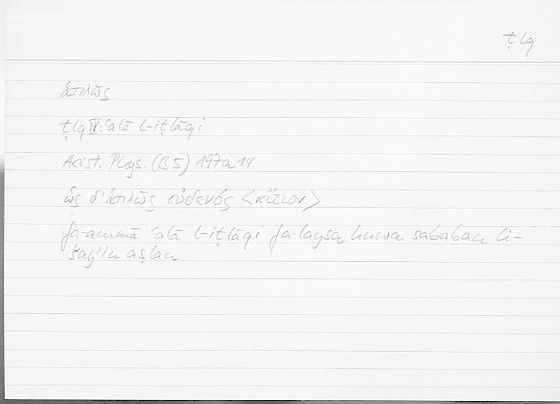 ṭlq
ἁπλῶς
ṭlq IV: ʿalā l-iṭlāqi
Arist. Phys. (B 5) 197a 14
ὡς δ' ἁπλῶς οὐδενός <αἴτιον>
fa-ammā ʿalā l-iṭlāqi fa-laysa huwa sababan li-
šayʾin aṣlan